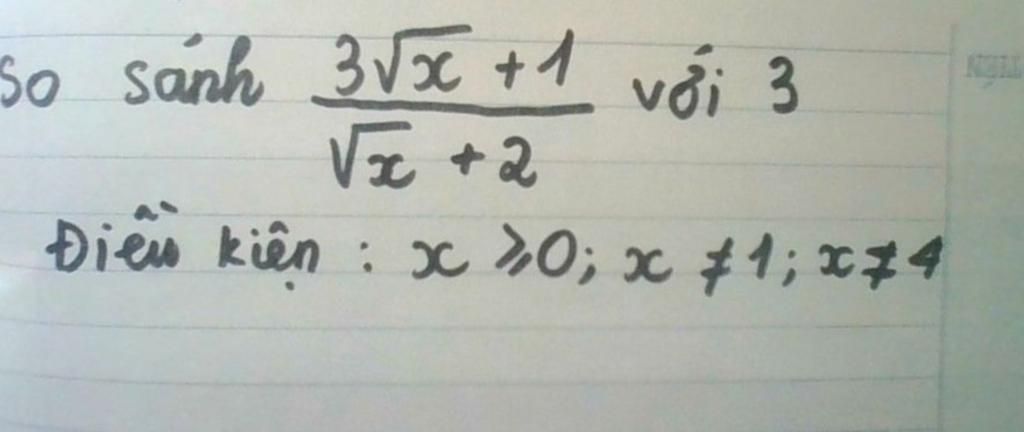 So sánh (3√x + 1)/(√x + 2) với 3
Điều kiện : x ≥ 0; x ≠ 1; x ≠ 4